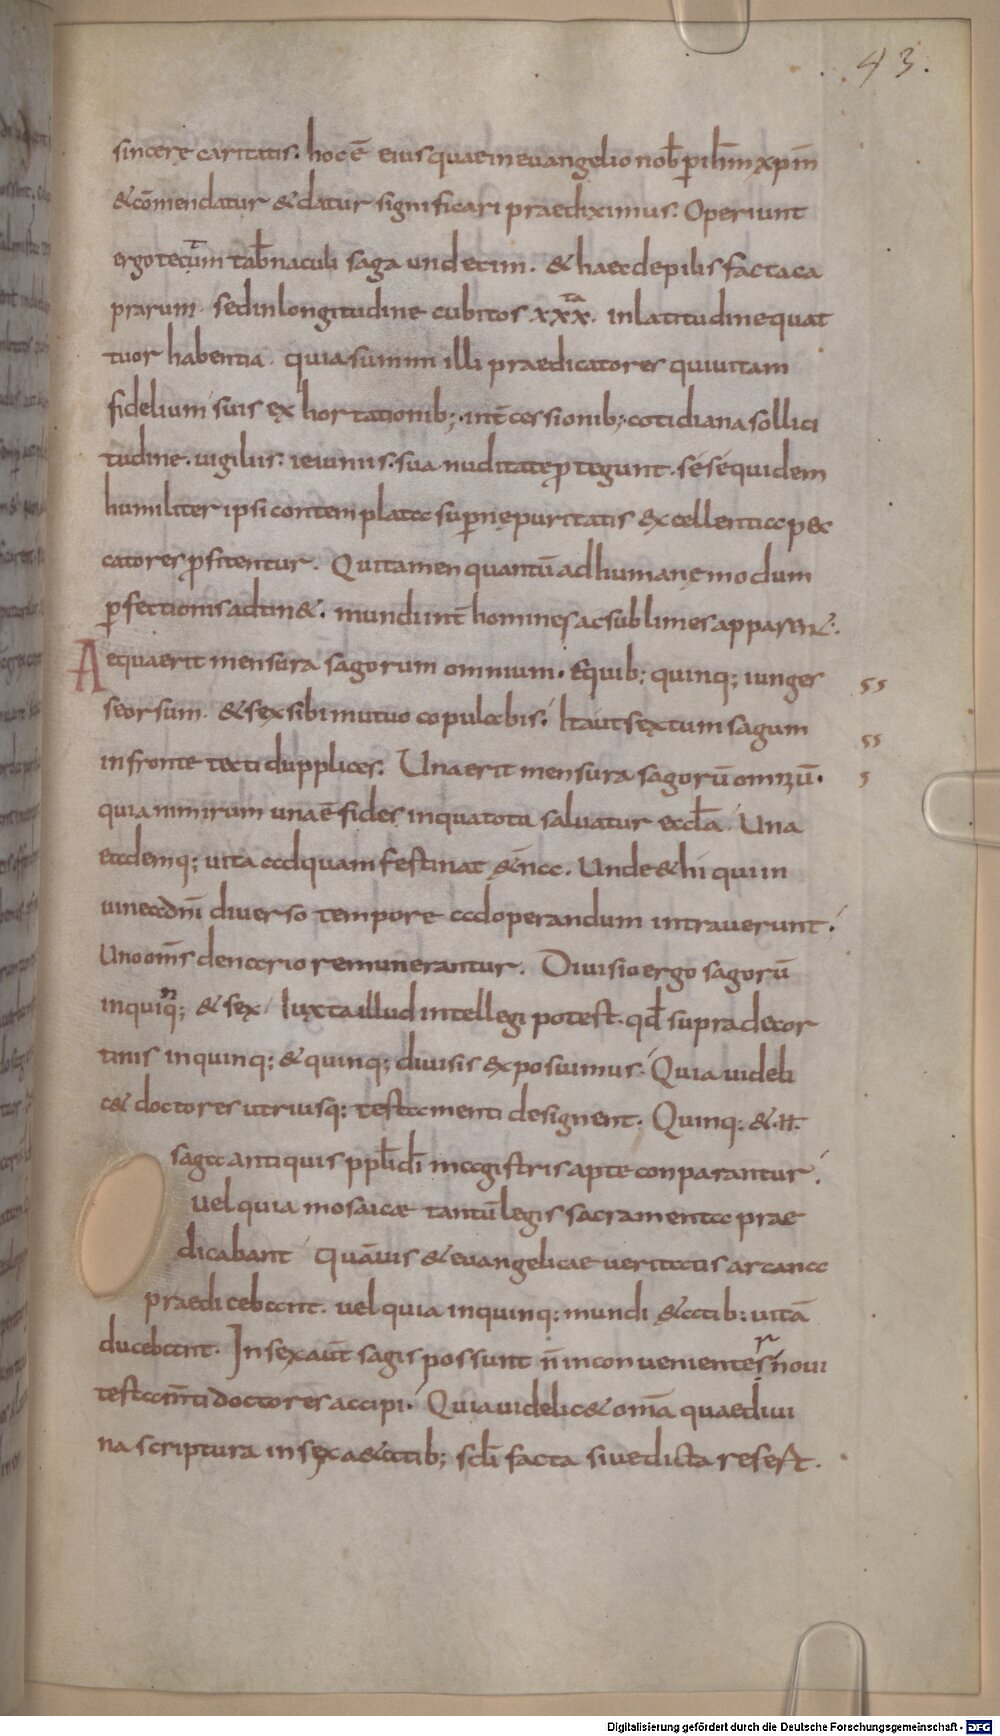 43.
sincerę caritatis. hoc ē eius quae in euangelio nob̄ p̱ ih̄m xp̄m
& cōmendatur & datur significari praediximus. Operiunt
ergo tectum tab̄naculi saga undecim. & haec de pilis facta ca
prarum. sed in longitudine cubitos xxx ta. in latitudine quat
tuor habentia. quia summi illi praedicatores qui uitam
fidelium suis exhortationib; int̄cessionib; cotidiana sollici
tudine. uigiliis. ieiuniis. sua nuditate p̱tegunt. sese quidem
humiliter ipsi contemplata sup̱nę puritatis excellentia pec
catores p̱fitentur. Qui tamen quantū ad humanę modum
p̱fectionis adtin&. mundi int̄ homines ac sublimes apparen&.
Aequa erit mensura sagorum omnium. Equib; quinq; iunges
seorsum. & sex sibi mutuo copulabis. Ita ut sextum sagum
in fronte tecti dupplices. Una erit mensura sagorū omniū.
quia nimirum una ē fides in qua tota saluatur eccl̄a. Una
eademq; uita ad quam festinat &̄na. Unde & hi qui in
uinea dn̄i diuerso tempore ad operandum intrauerunt.
Uno om̄s denario remunerantur. Diuisio ergo sagorū
in quinq; & sex Iuxta illud intellegi potest. qđ supra de cor
tinis in quinq; & quinq; diuisis exposuimus. Quia uideli
c& doctores utriusq; testamenti designent. Quinq; &.n̄.
saga antiquis ppl̄i dī magistris apte conparantur.
uel quia mosaicae tantū legis sacramenta prae
dicabant quāuis & euangelicae ueritatis arcana
praedicabant. uel quia in quinq; mundi &atib; uitā
ducebant. In sex aūt sagis possunt n̄ inconuenientes r noui
testam̄ti doctores accipi. Quia uidelic& om̄a quae diui
na scriptura in sex a&atib; scl̄i facta siue dicta resest.
Digitalisierung gefördert durch die Deutsche Forschungsgemeinschaft - DFG